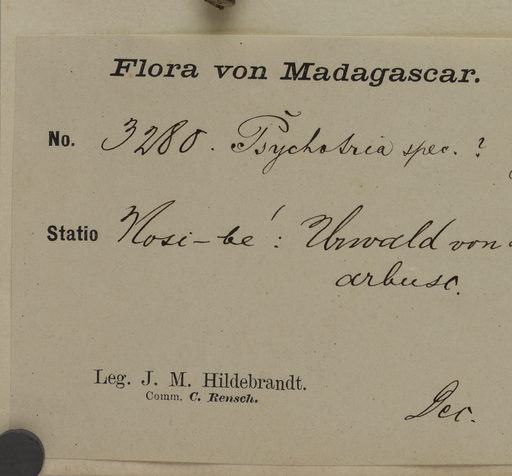 Flora von Madagascar.
No. 3280. Psychotria spec. ?
Statio Nosi-be': Urwald von
arbusc.
Leg. J. M. Hildebrandt.
Comm. C. Rensch.
Dec.